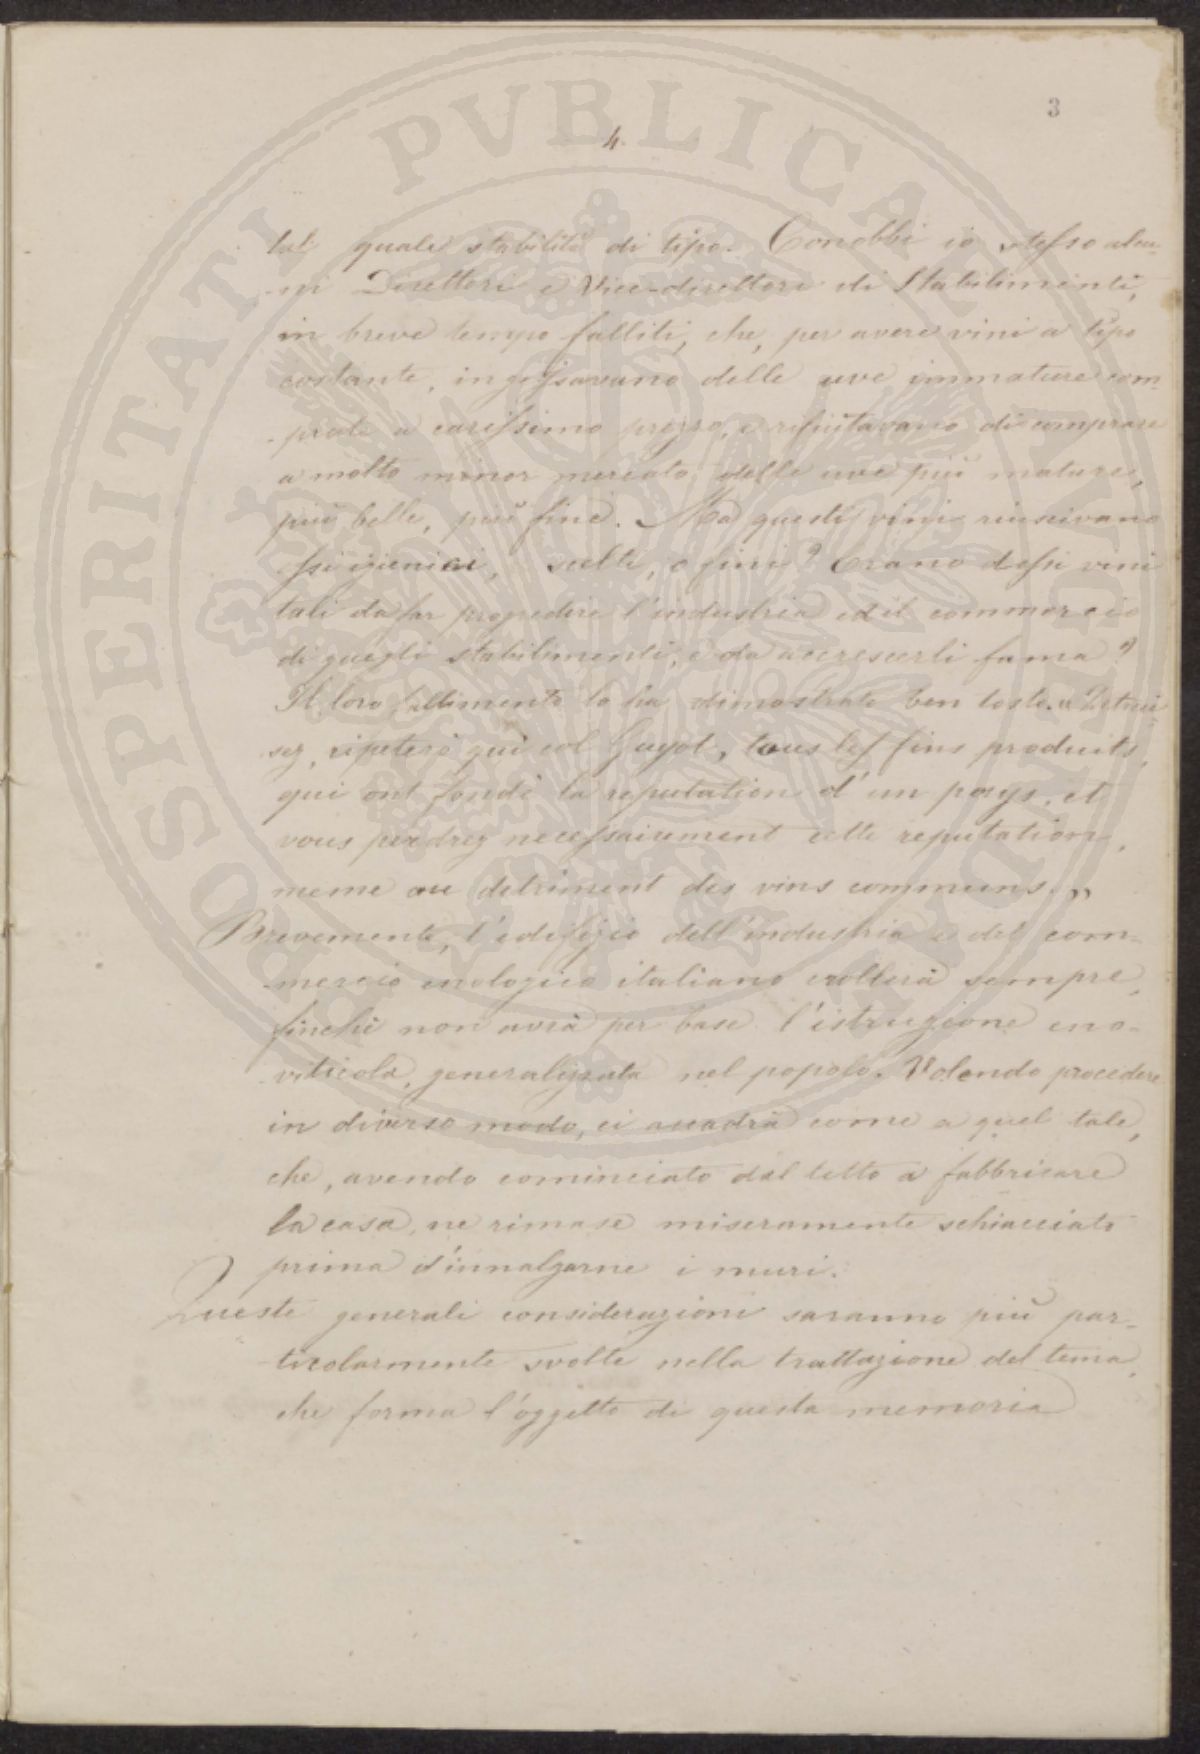 3
4.
tal quale stabilità di tipo. Conobbi io stesso alcu-
ni Direttori e Vice-direttori di Stabilimenti,
in breve tempo falliti, che, per avere vini a tipo
costante, ingessavano delle uve immature com-
prate a carissimo prezzo, e rifiutavano di comprare
a molto minor mercato, delle uve più mature,
più belle, più fine. Ma questi vini riuscivano
essi igienici, scelti, o fini? Erano dessi vini
tali da far progredire l'industria ed il commercio
di quegli stabilimenti, e da accrescerli fama?
Il loro fallimento lo ha dimostrato ben tosto. «Detrui-
sez, ripeterò qui col Guyot, tous les fins produits,
qui ont fondé la reputation d'un pays, et
vous perdrez necessairement cette reputation,
meme au detriment des vins communs.»
Brevemente, l'edifizio dell'industria e del com-
mercio enologico italiano crollerà sempre,
finchè non avrà per base l'istruzione eno-
viticola, generalizzata nel popolo. Volendo procedere
in diverso modo, ci accadrà come a quel tale,
che, avendo cominciato dal tetto a fabbricare
la casa, ne rimase miseramente schiacciato
prima d'innalzarne i muri.
Queste generali considerazioni saranno più par-
ticolarmente svolte nella trattazione del tema,
che forma l'oggetto di questa memoria
PROSPERITATI PVBLICAE AVGENDAE